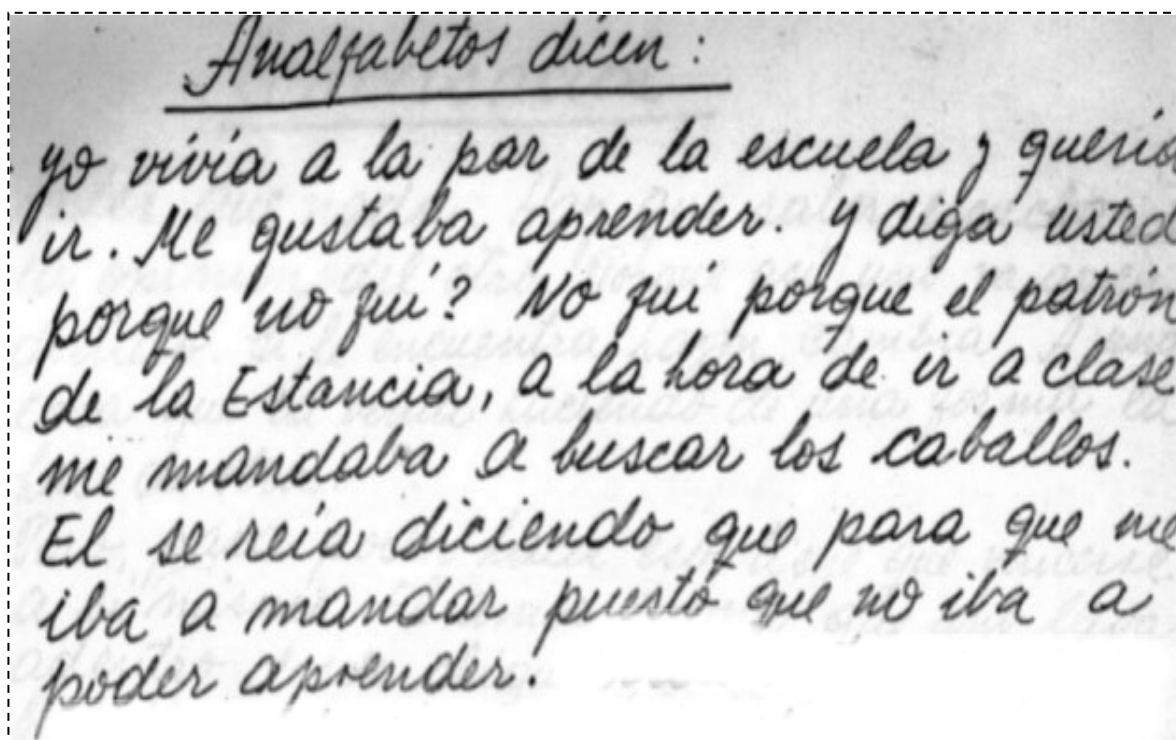 Analfabetos dicen:
yo vivía a la par de la escuela y quería
ir. Me gustaba aprender. y diga usted
porque no fuí? No fuí porque el patrón
de la Estancia, a la hora de ir a clase
me mandaba a buscar los caballos.
El se reía diciendo que para que me
iba a mandar puestó que no iba a
poder aprender.